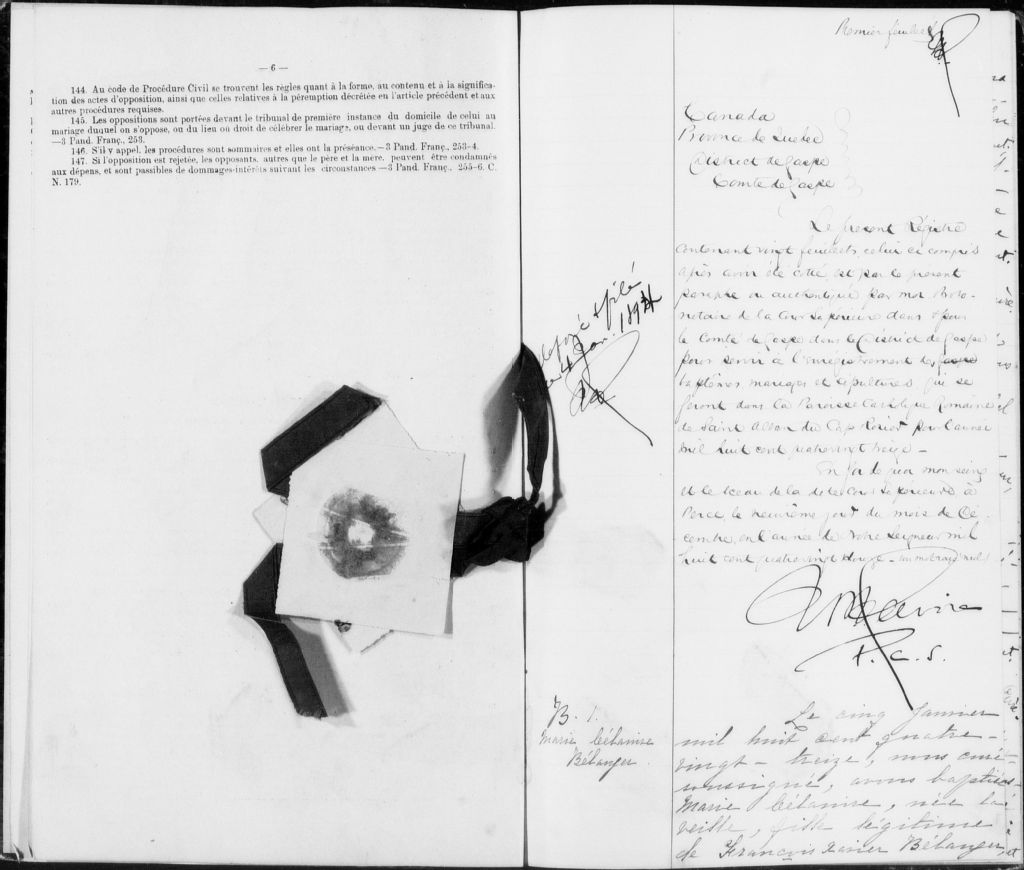 — 6 —
144. Au code de Procédure Civil se trouvent les règles quant à la forme, au contenu et à la significa-
tion des actes d'opposition, ainsi que celles relatives à la péremption décrétée en l'article précédent et aux
autres procédures requises.
145. Les oppositions sont portées devant le tribunal de première instance du domicile de celui au
mariage duquel on s'oppose, ou du lieu où droit de célébrer le mariage, ou devant un juge de ce tribunal.
—3 Pand. Franç., 253.
146. S'il y appel, les procédures sont sommaires et elles ont la préséance.—3 Pand. Franç., 253-4.
147. Si l'opposition est rejetée, les opposants, autres que le père et la mère, peuvent être condamnés
aux dépens, et sont passibles de dommages-intérêts suivant les circonstances —3 Pand. Franç., 255-6. C.
N. 179.
Premier feuillet
Canada
Province de Québec
District de Gaspé
Comté de Gaspé
Le présent Régistre
contenant vingt feuillets celui ci compris
après avoir été coté et par le présent
paraphé ou authentiqué par moi Proto-
notaire de la Cour Supérieure dans & pour
le Comté de Gaspé dans le District de Gaspé
pour servir à l'enregistrement des
baptêmes mariages et sépultures qui se
feront dans la Paroisse Catholique Romaine
de Saint Alban du Cap Rosier pour l'année
mil huit cent quatrevingt treize —
En foi de quoi mon seing
et le sceau de la dite Cour Supérieure à
Percé, le neuvième jour du mois de Dé-
cembre, en l'année de Notre Seigneur mil
huit cent quatrevingt douze — un mot rayé nul
P. C. S.
& filé
ce 4 Jan. 1894
B. 1.
Marie Célanise
Bélanger
Le cinq Janvier
mil huit cent quatre-
vingt-treize, nous curé
soussigné, avons baptisé
Marie Célanise, née la
veille, fille légitime
de François Xavier Bélanger,